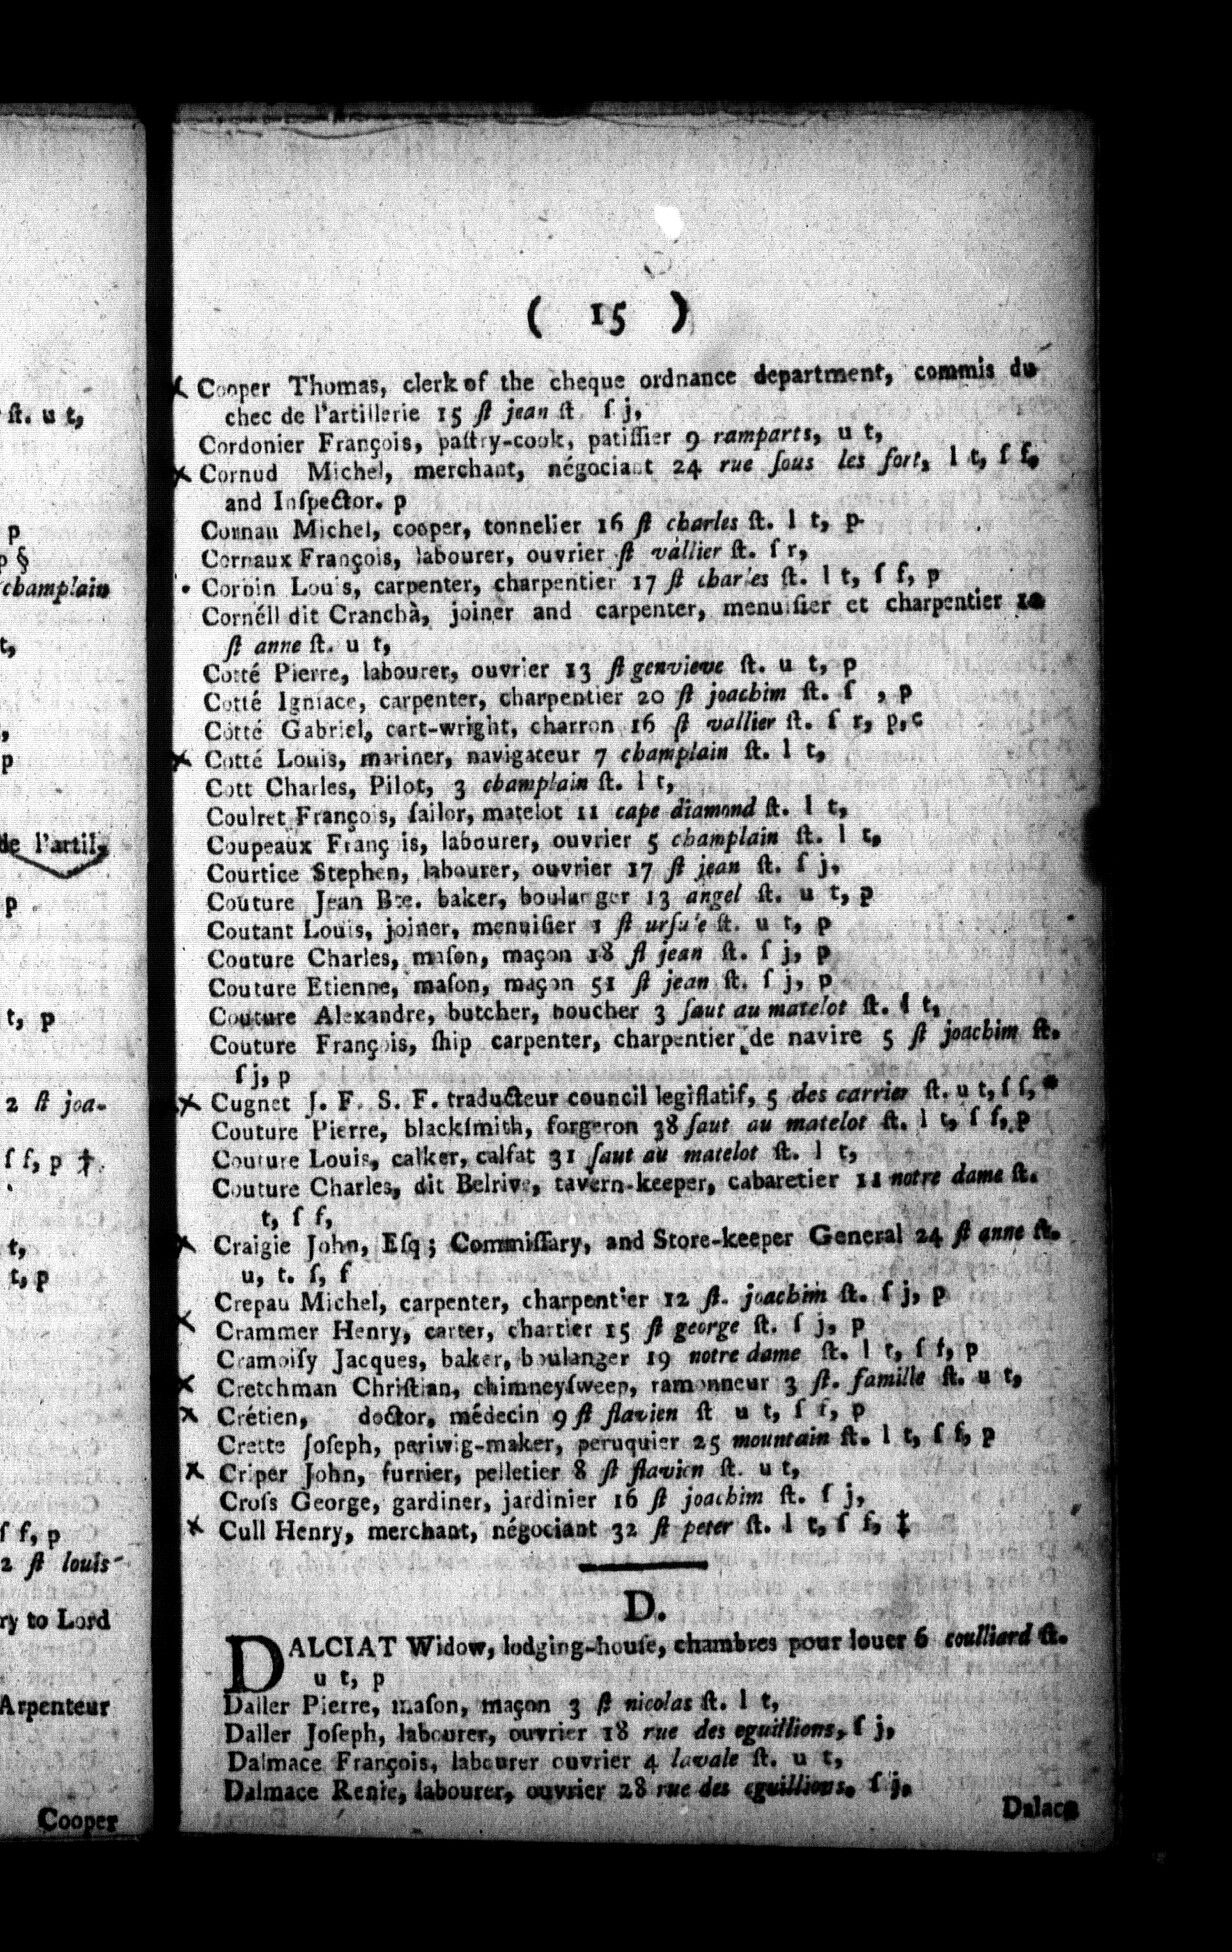 ſt. u t,
p
p §
champlain
t,
,
p
de l'artil,
p
t, p
2 ſt joa-
ſ ſ, p †.
t,
t, p
ſ ſ, p
2 ſt louis
ry to Lord
Arpenteur
Cooper
( 15 )
Cooper Thomas, clerk of the cheque ordnance department, commis du
chec de l'artillerie 15 ſt jean ſt ſ j,
Cordonier François, paſtry-cook, patiſſier 9 ramparts, u t,
Cornud Michel, merchant, négociant 24 rue ſous les fort, l t, ſ ſ,
and Inſpector. p
Cornau Michel, cooper, tonnelier 16 ſt charles ſt. l t, p
Cornaux François, labourer, ouvrier ſt vallier ſt. ſ r,
Corbin Louis, carpenter, charpentier 17 ſt charles ſt. l t, ſ ſ, p
Cornéll dit Cranchà, joiner and carpenter, menuiſier et charpentier 10
ſt anne ſt. u t,
Cotté Pierre, labourer, ouvrier 13 ſt genvieve ſt. u t, p
Cotté Igniace, carpenter, charpentier 20 ſt joachim ſt. ſ , p
Cotté Gabriel, cart-wright, charron 16 ſt vallier ſt. ſ r, p,c
Cotté Louis, mariner, navigateur 7 champlain ſt. l t,
Cott Charles, Pilot, 3 champlain ſt. l t,
Coulret François, ſailor, matelot 11 cape diamond ſt. l t,
Coupeaux Franç is, labourer, ouvrier 5 champlain ſt. l t,
Courtice Stephen, labourer, ouvrier 17 ſt jean ſt. ſ j,
Couture Jean Bte. baker, boulanger 13 angel ſt. u t, p
Coutant Louis, joiner, menuiſier 1 ſt urſule ſt. u t, p
Couture Charles, maſon, maçon 18 ſt jean ſt. ſ j, p
Couture Etienne, maſon, maçon 51 ſt jean ſt. ſ j, p
Couture Alexandre, butcher, boucher 3 ſaut au matelot ſt. l t,
Couture François, ſhip carpenter, charpentier de navire 5 ſt joachim ſt.
ſ j, p
Cugnet J. F. S. F. traducteur council legiſlatif, 5 des carrier ſt. u t, ſ ſ, *
Couture Pierre, blackſmith, forgeron 38 ſaut au matelot ſt. l t, ſ ſ, p
Couture Louis, calker, calfat 31 ſaut au matelot ſt. l t,
Couture Charles, dit Belrive, tavern-keeper, cabaretier 11 notre dame ſt.
t, ſ ſ,
Craigie John, Eſq; Commiſſary, and Store-keeper General 24 ſt anne ſt.
u, t. ſ, ſ
Crepau Michel, carpenter, charpentier 12 ſt. joachim ſt. ſ j, p
Crammer Henry, carter, chartier 15 ſt george ſt. ſ j, p
Cramoiſy Jacques, baker, boulanger 19 notre dame ſt. l t, ſ ſ, p
Cretchman Chriſtian, chimneyſweep, ramonneur 3 ſt. famille ſt. u t,
Crétien, doctor, médecin 9 ſt flavien ſt u t, ſ ſ, p
Crette Joſeph, periwig-maker, peruquier 25 mountain ſt. l t, ſ ſ, p
Criper John, furrier, pelletier 8 ſt flavien ſt. u t,
Croſs George, gardiner, jardinier 16 ſt joachim ſt. ſ j,
Cull Henry, merchant, négociant 32 ſt peter ſt. l t, ſ ſ, ‡
D.
DALCIAT Widow, lodging-houſe, chambres pour louer 6 coulliard ſt.
u t, p
Daller Pierre, maſon, maçon 3 ſt nicolas ſt. l t,
Daller Joſeph, labourer, ouvrier 18 rue des eguillions, ſ j,
Dalmace François, labourer ouvrier 4 lavale ſt. u t,
Dalmace Renie, labourer, ouvrier 28 rue des eguillions. ſ j,
Dalace